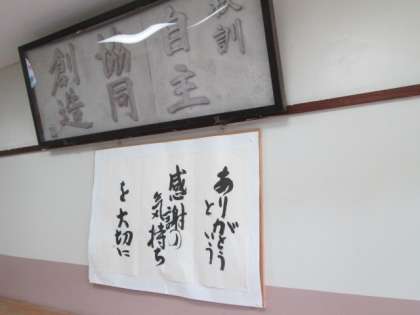 校訓
自主
協同
創造
ありがとう
という
感謝の
気持ち
を大切に